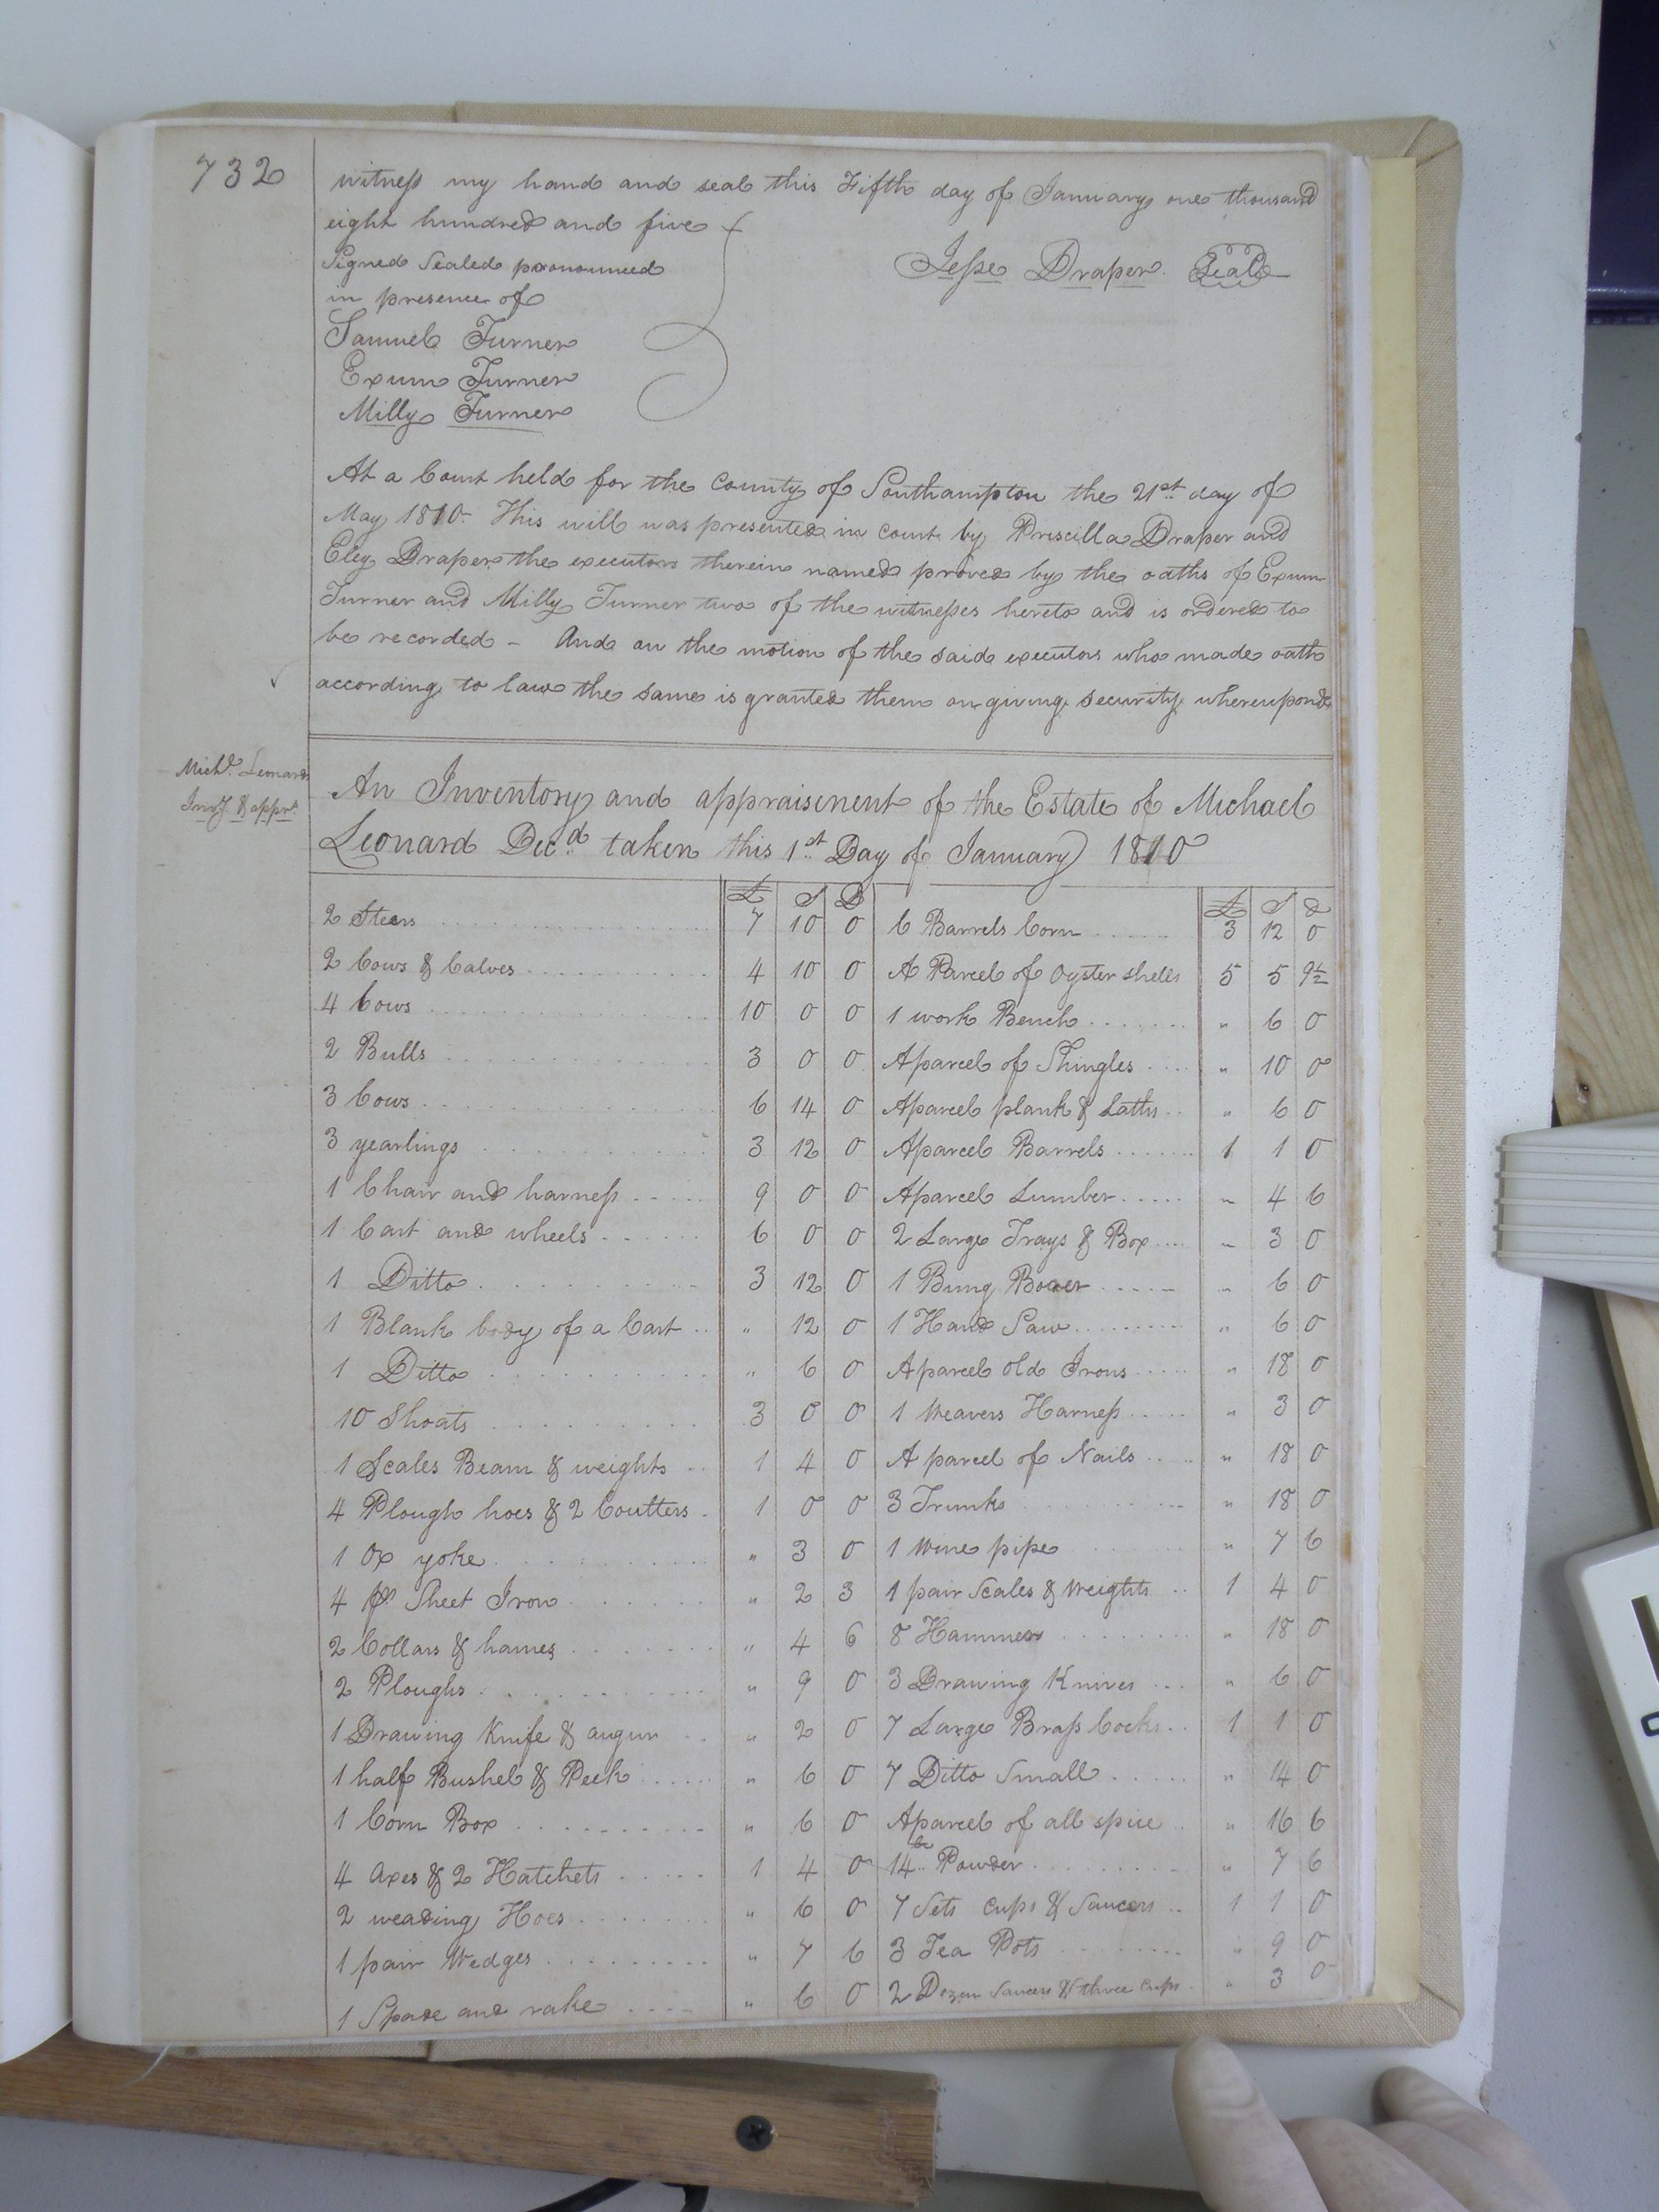 732
witness my hand and seal this Fifth day of January one thousand
eight hundred and five
Signed Sealed pronounced
in presence of
Jesse Draper Seal
Samuel Turner
Exum Turner
Milly Turner
At a Court held for the County of Southampton the 21st day of
May 1810. This will was presented in court by Priscilla Draper and
Eley Draper the executors therein named proved by the oaths of Exum
Turner and Milly Turner two of the witnesses hereto and is ordered to
be recorded - And on the motion of the said executors who made oath
according to law the same is granted them on giving security whereupon &
Michl. Leonard
Invy. & apprt.
An Inventory and appraisement of the Estate of Michael
Leonard Decd taken this 1st Day of January 1810
£ S D
2 Steers 7 10 0
2 Cows & Calves 4 10 0
4 Cows 10 0 0
2 Bulls 3 0 0
3 Cows 6 14 0
3 yearlings 3 12 0
1 Chair and harness 9 0 0
1 Cart and wheels 6 0 0
1 Ditto 3 12 0
1 Blank body of a Cart " 12 0
1 Ditto " 6 0
10 Shoats 3 0 0
1 Scales Beam & weights 1 4 0
4 Plough hoes & 2 Coutters 1 0 0
1 Ox yoke " 3 0
4 ps Sheet Iron " 2 3
2 Collars & hames " 4 6
2 Ploughs " 9 0
1 Drawing Knife & augur " 2 0
1 half Bushel & Peck " 6 0
1 Corn Box " 6 0
4 Axes & 2 Hatchets 1 4 0
2 weading Hoes " 6 0
1 pair Wedges " 7 6
1 Spade and rake " 6 0
£ S d
6 Barrels Corn 3 12 0
A Parcel of Oyster shells 5 5 9½
1 work Bench " 6 0
Aparcel of Shingles " 10 0
Aparcel plank & Laths " 6 0
Aparcel Barrels 1 1 0
Aparcel Lumber " 4 6
2 Large Trays & Box " 3 0
1 Bung Borer " 6 0
1 Hand Saw " 6 0
Aparcel old Irons " 18 0
1 Weavers Harness " 3 0
A parcel of Nails " 18 0
3 Trunks " 18 0
1 Wine pipe " 7 6
1 pair Scales & Weights 1 4 0
8 Hammers " 18 0
3 Drawing Knives " 6 0
7 Large Brass Cocks 1 1 0
7 Ditto Small " 14 0
Aparcel of all spice " 16 6
14 lb Powder " 7 6
7 Sets Cups & Saucers 1 1 0
3 Tea Pots " 9 0
2 Dozen Saucers & three Cups " 3 0